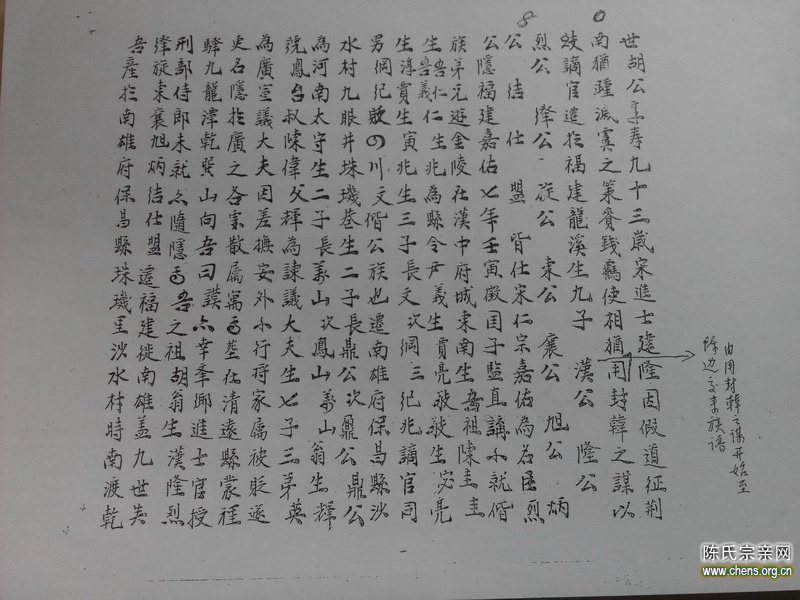 世胡公享寿九十三歲宋進士建隆因假道征荆
南猶踵滅虞之策賚錢鷄使相猶用封韓之謀以
歧謫官遷扵福建龍溪生九子 漢公 隆公
烈公 绛公 從公 束公 襄公 旭公 炳
公 结 仕 盟 皆仕宋仁宗嘉佑為臣烈
公隱福建嘉佑七年壬寅徵国子监直講不就偕
族弟元遊金陵在漢中府城東南生吾祖陳圭圭
生吾仁仁生兆為縣令尹義生賁亮
吾義
生淳賁生寅兆生三子長文次綱三纪兆謫官同
男綱纪四川文偕公族也遷南雄府保昌縣沙
水村九眼井珠璣巷生二子長鼎公次鼐公鼎公
為河南太守生二子長義山次鳳山義山翁生輝
號鳳台叔陳偉父輝為諫議大夫生七子三弟英
為廣宣議大夫因差撫安外小行将家属被貶遂
更名隱扵廣之各处散属寓塟在清遠縣蒙裡
驿九龍潭乾巽山向吾曰謨公幸季卿進士官授
刑部侍郎未就公隨隱吾之祖胡翁生漢隆烈
绛旋束襄旭炳结仕盟遷福建徙南雄盖九世矣
吾產扵南雄府保昌縣珠璣里沙水村時南渡乾
0
8
由用封韓之謀开始至
族谱
陈氏宗亲网
www.chens.org.cn